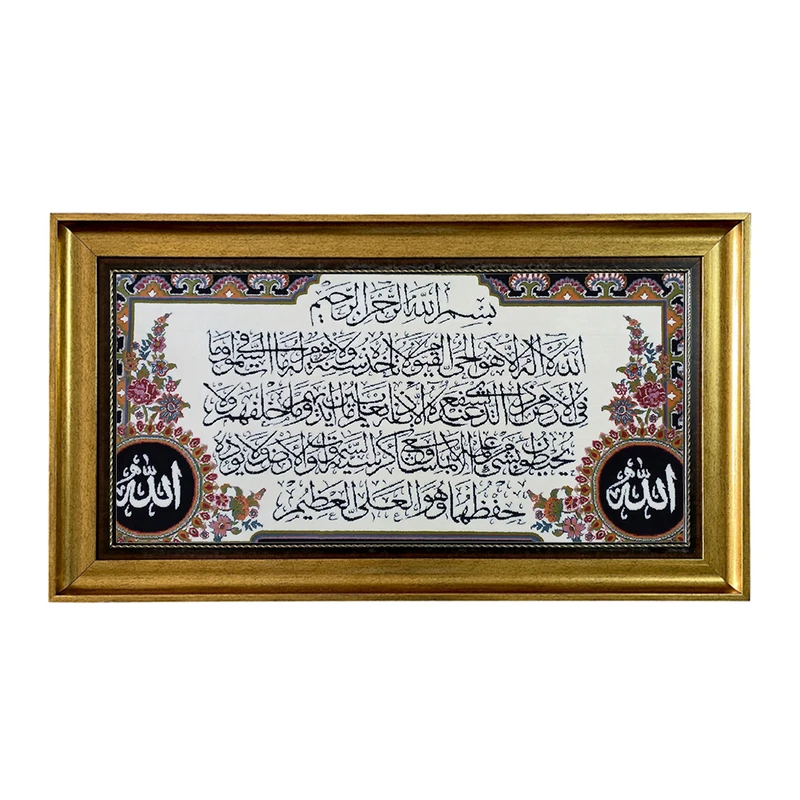 بسم الله الرحمن الرحيم
الله لا اله الا هو الحي القيوم لا تاخذه سنة ولا نوم له ما في السموات وما
في الارض من ذا الذي يشفع عنده الا باذنه يعلم ما بين ايديهم وما خلفهم ولا
يحيطون بشيء من علمه الا بما شاء وسع كرسيه السموات والارض ولا يؤده
حفظهما وهو العلي العظيم
الله
الله